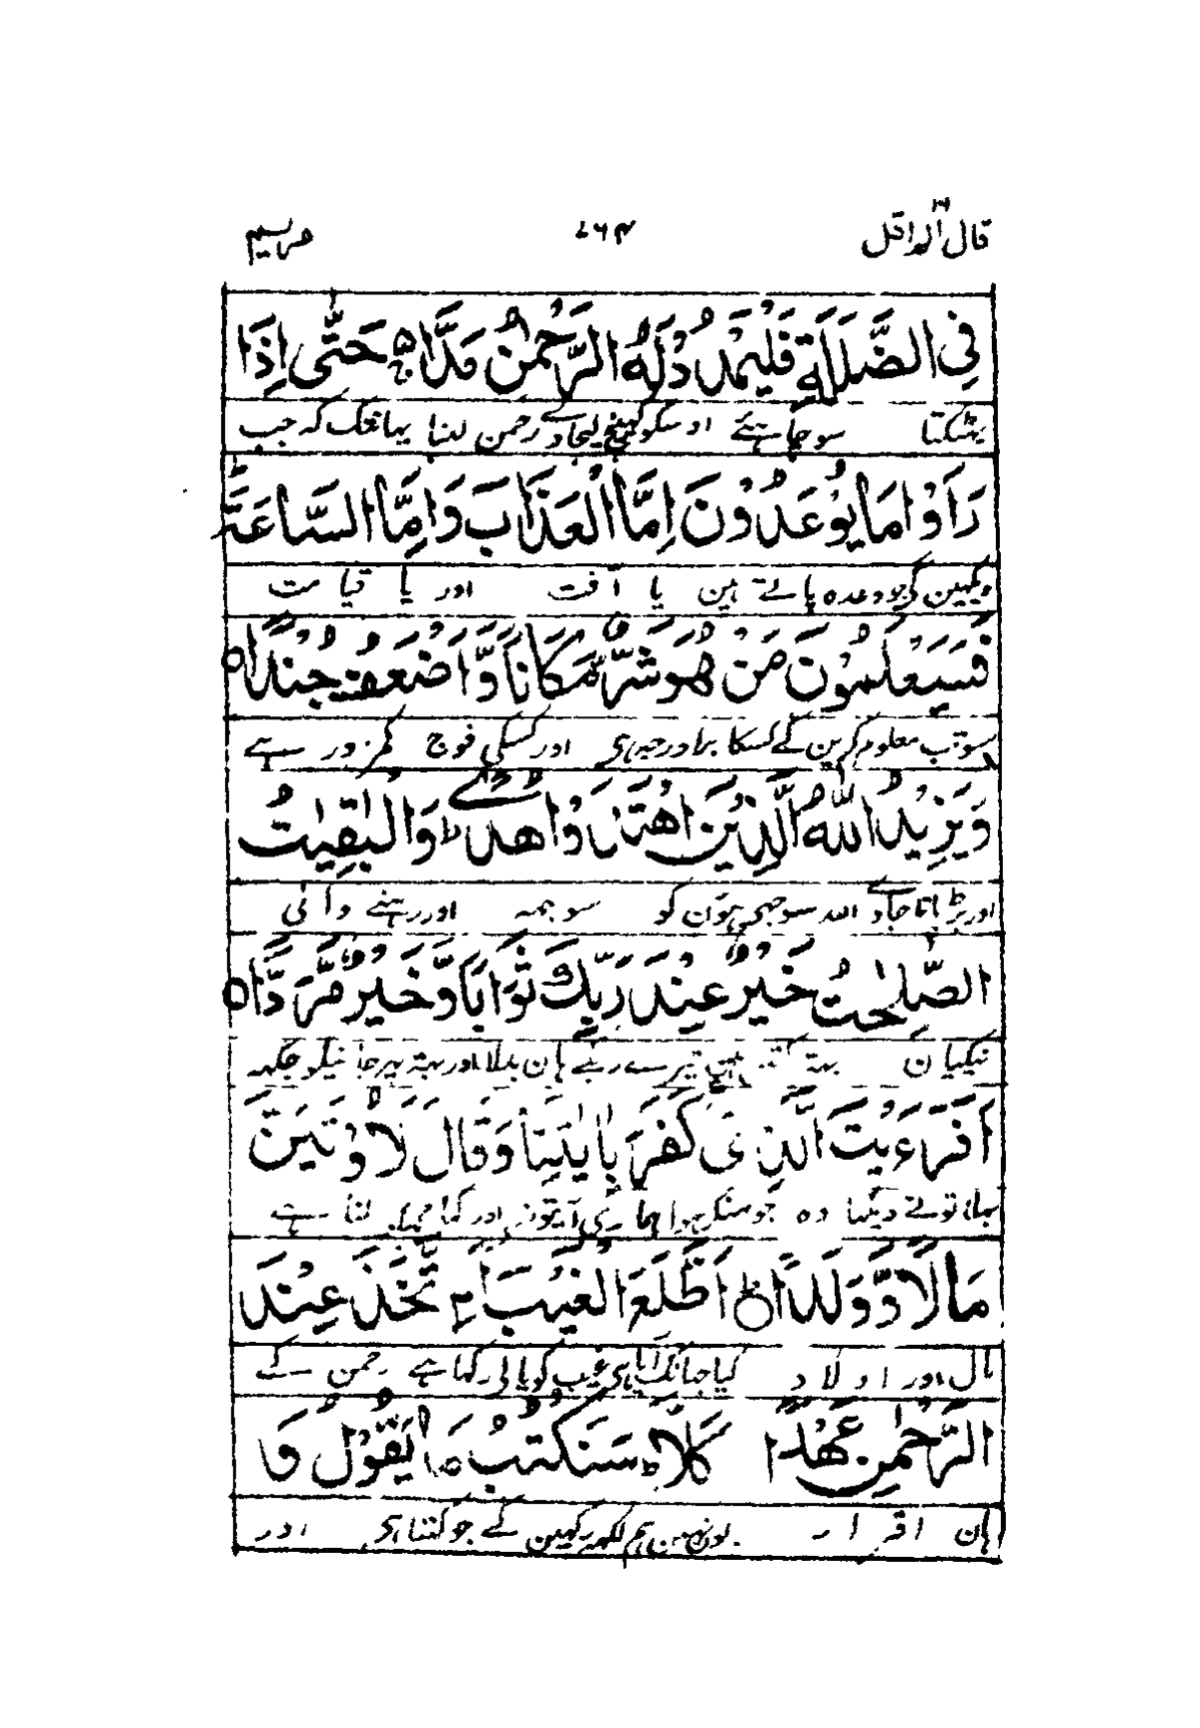 قال الم اقل ١٦ ٤٦٧ مریم
فِي الضَّلٰلَةِ فَلْيَمْدُدْ لَهُ الرَّحْمٰنُ مَدًّا ۚ حَتّٰى اِذَا
بھٹکتا سو چاہئے اوسکو کھینچ لیجاوے رحمن لنبا یہانتک کہ جب
رَاَوْا مَا يُوْعَدُوْنَ اِمَّا الْعَذَابَ وَاِمَّا السَّاعَةَ ؕ
دیکھین گے جو وعدہ پاتے ہین یا آفت اور یا قیامت
فَسَيَعْلَمُوْنَ مَنْ هُوَ شَرٌّ مَّكَانًا وَّاَضْعَفُ جُنْدًا ○
سو تب معلوم کرین گے کسکا برا درجہ ہی اور کسکی فوج کمزور ہے
وَيَزِيْدُ اللّٰهُ الَّذِيْنَ اهْتَدَوْا هُدًى ؕ وَالْبٰقِيٰتُ
اور بڑہاتا جاوے اللہ سوجھے ہوؤن کو سوجھ اور رہنے والی
الصّٰلِحٰتُ خَيْرٌ عِنْدَ رَبِّكَ ثَوَابًا وَّخَيْرٌ مَّرَدًّا ○
نیکیان بہتر تیرے رب کے ہان بدلا اور بہتر پھر جانیکو جگہ
اَفَرَءَيْتَ الَّذِىْ كَفَرَ بِاٰيٰتِنَا وَقَالَ لَاُوْتَيَنَّ
بھلا تونے دیکھا وہ جو منکر ہوا ہماری آیتونسے اور کہا مجہکو لنا ہے
مَالًا وَّوَلَدًا ؕ اَطَّلَعَ الْغَيْبَ اَمِ اتَّخَذَ عِنْدَ
مال اور اولاد کیا جھانک آیا ہی غیب کو یا لی رکھا ہے رحمن کے
الرَّحْمٰنِ عَهْدًا كَلَّا ؕ سَنَكْتُبُ مَا يَقُوْلُ وَ
ہان اقرار یون نہین ہم لکھ رکھین گے جو کہتا ہی اور